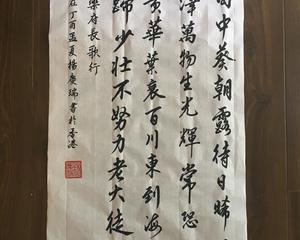 中葵朝露待日晞
澤萬物生光輝常恐
黃華葉衰百川東到海
歸少壯不努力老大徒
樂府長歌行
在丁酉孟夏楊瑞書於香港